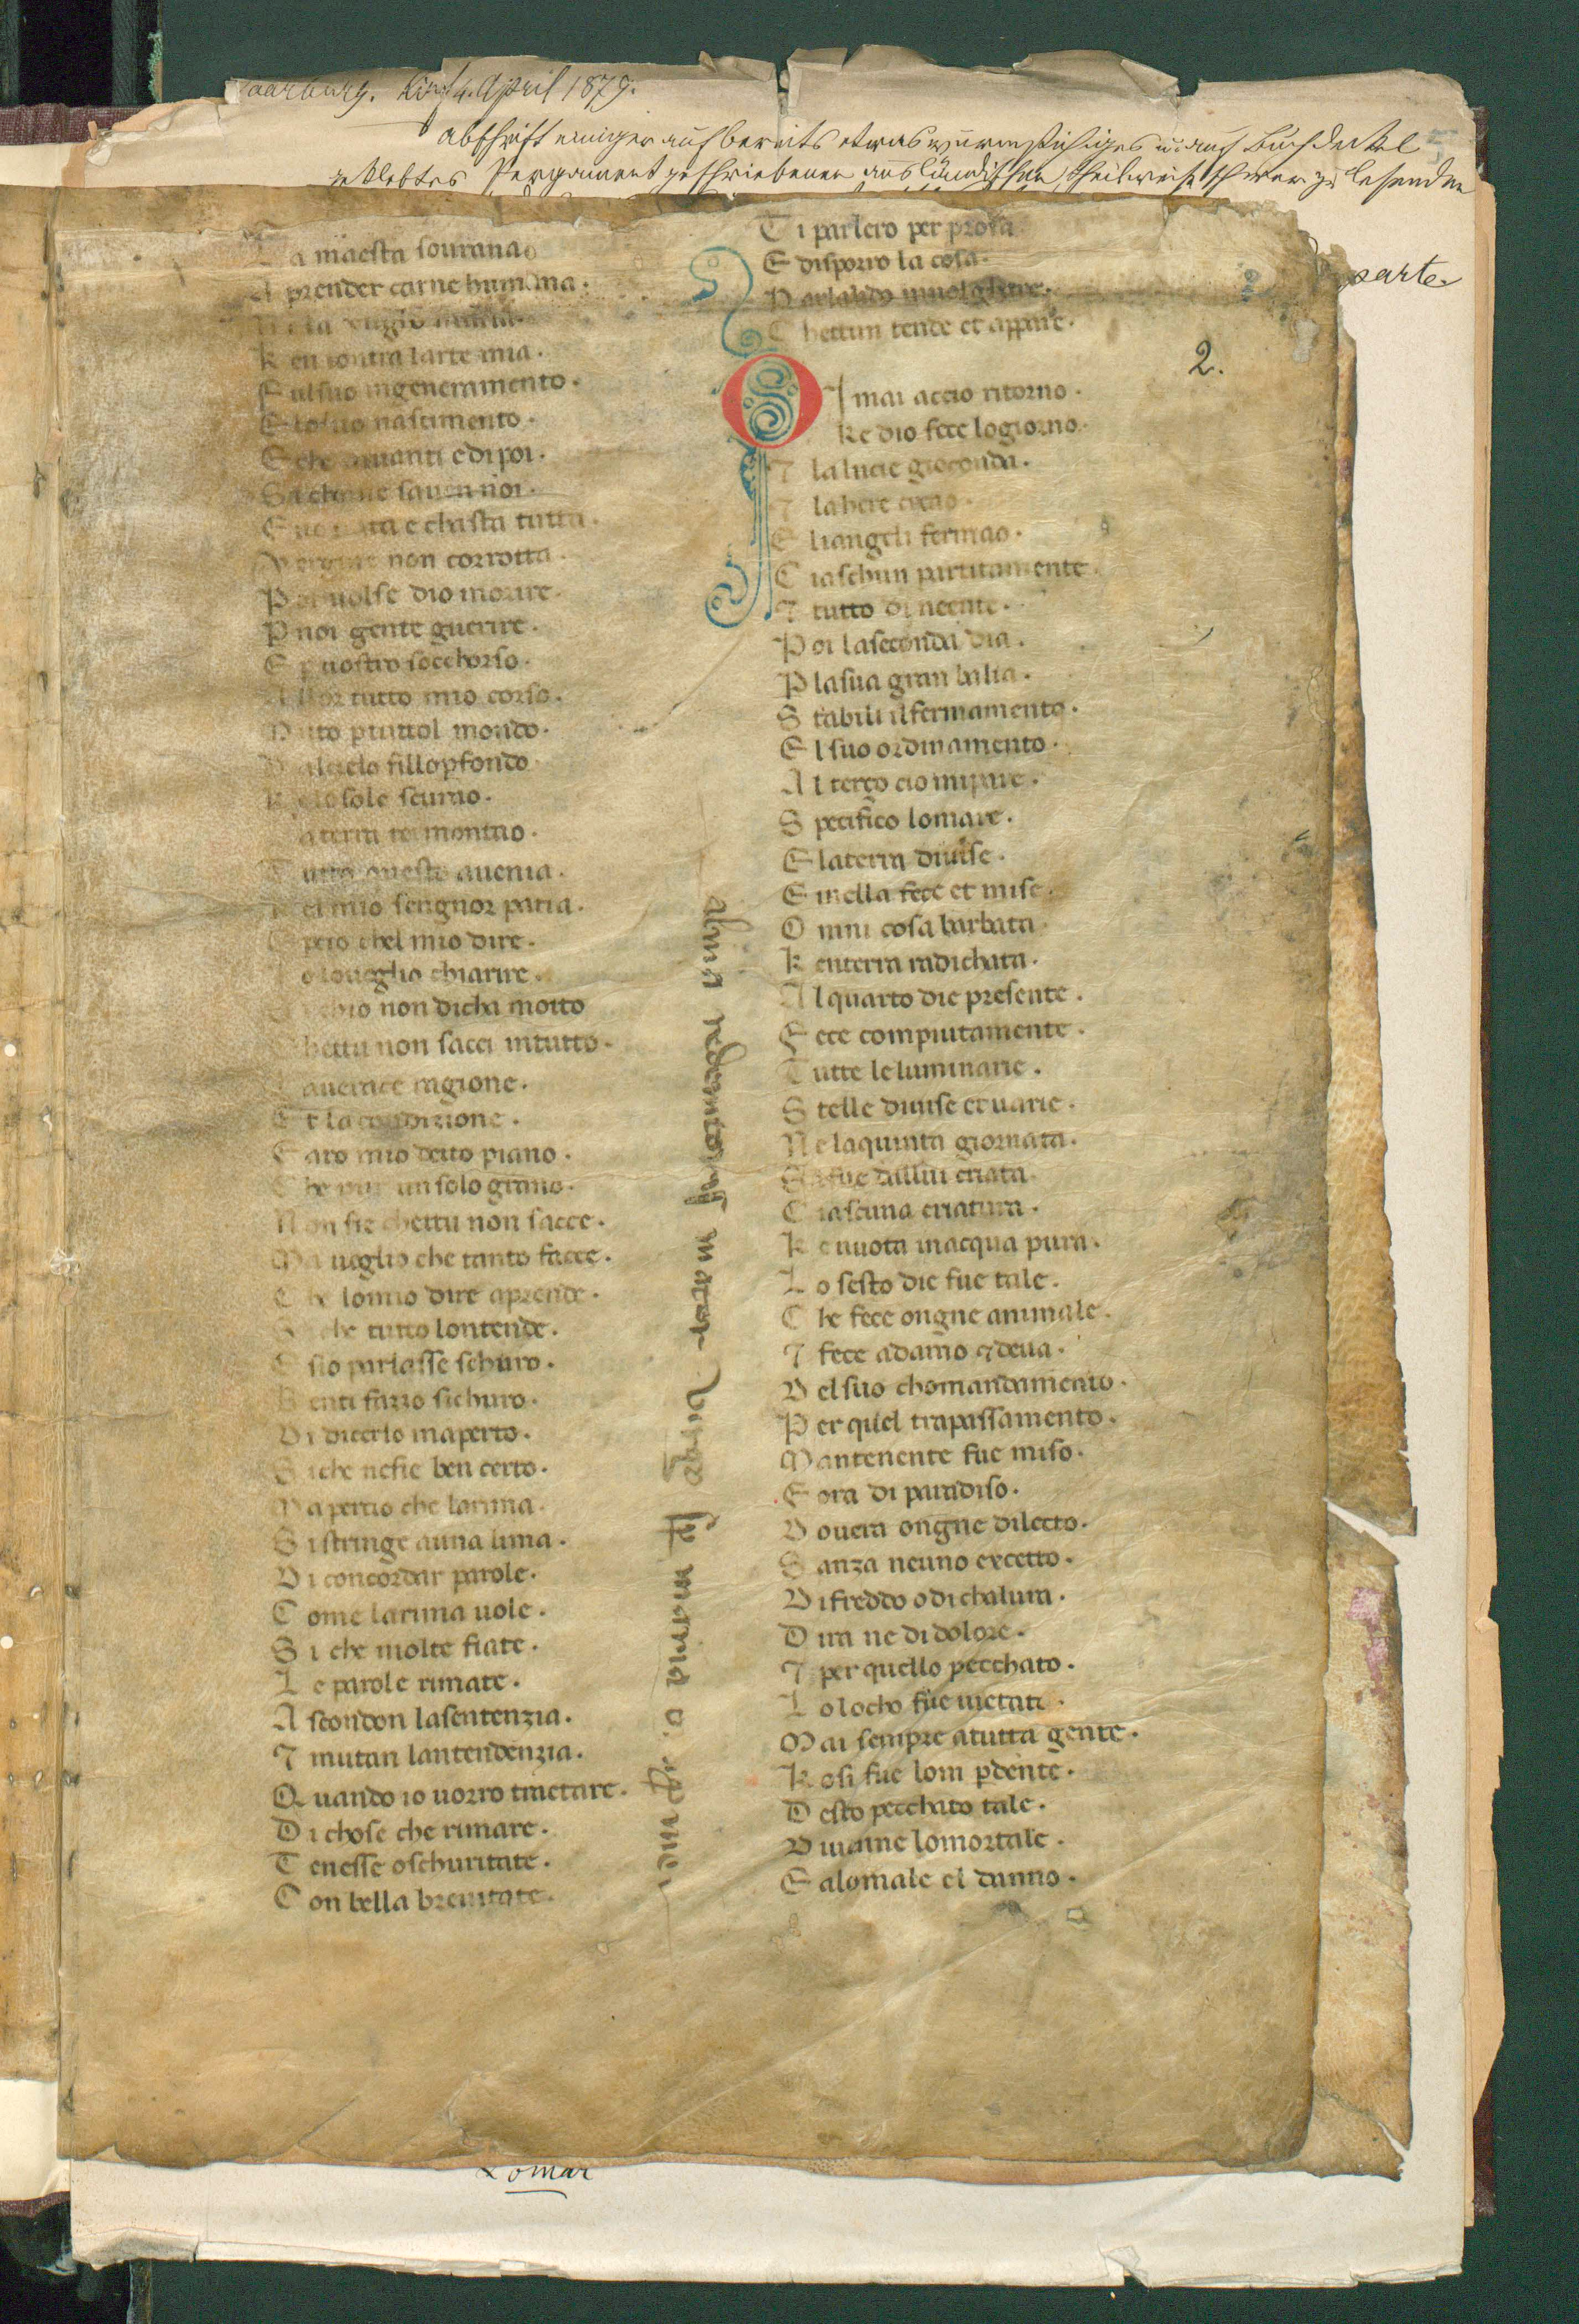 Saarburg. den 4. April 1879.
Abschrift einiger auf bereits etwas wurmstichiges u. auf Buchdeckel
geklebtes Pergament geschriebenen ausländischen, theilweise schwer zu lesenden
parte
2.
La maesta sourana
A prender carne humana .
K en contra larte mia .
F ul suo ingeneramento .
E lo suo nascimento .
E che auanti e di poi .
Si chome sauen noi .
e chasta tutta .
Vergine non corrotta .
Poi uolse dio morire .
P noi gente guerire .
E p nostro socchorso .
Allor tutto mio corso .
Muto p tuttol mondo .
Dal cielo fillo pfondo
K e lo sole scurao .
La terra termentao .
Tutto questo auenia .
K el mio sengnor patia .
E pcio chel mio dire .
Io lo ueglio chiarire .
chio non dicha motto
Chettu non sacci intutto .
Lauerace ragione .
Et la condizione .
Faro mio detto piano .
Che pur un solo grano .
Non sie chettu non sacce .
Ma ueglio che tanto facce .
Che lo mio dire aprende .
Si che tutto lontende .
E sio parlasse schuro .
Benti farro sichuro .
Di dicerlo inaperto .
Siche nesie ben certo .
Ma percio che la rima .
Si stringe auna lima .
Di concordar parole .
Come la rima uole .
Si che molte fiate .
Le parole rimate .
Ascondon lasentenzia .
7 mutan lantendenzia .
Quando io uorro tractare .
Di chose che rimare .
Tenesse oschuritate .
Con bella breuitate .
Ti parlero per prosa
E disporro la cosa .
Parlando
Chettun tende et appare .
O I mai accio ritorno .
Ke dio fece lo giorno .
7 la lucie gioconda .
7
E liangeli fermao .
Ciaschun partitamente .
7 tutto di neente .
Poi laseconda dia .
P lasua gran balia .
Stabili il fermamento .
El suo ordinamento .
Al terço cio mi pare .
Specifico lo mare .
E la terra diuise .
E inella fece et mise .
Onni cosa barbata
K enterra radichata .
Al quarto die presente .
Fece compiutamente .
Tutte le luminarie .
Stelle diuise et uarie .
Ne la quinta giornata .
Si fue dallui criata .
Ciascuna criatura .
Ke nuota inacqua pura .
Lo sesto die fue tale .
Che fece ongne animale .
7 fece adamo 7 deua .
Del suo chomandamento .
Per quel trapassamento .
Mantenente fue miso .
Fora di paradiso .
Douera ongne dilecto .
Sanza neuno eccetto .
Di freddo o di chalura .
D ira ne di dolore .
7 per quello pecchato .
Lo locho fue uietato .
Mai sempre atutta gente .
Kosi fue lom pdente .
Desto pecchato tale .
Diuenne lo mortale .
E alo male el danno .
alma redemtoris mater
Lomar